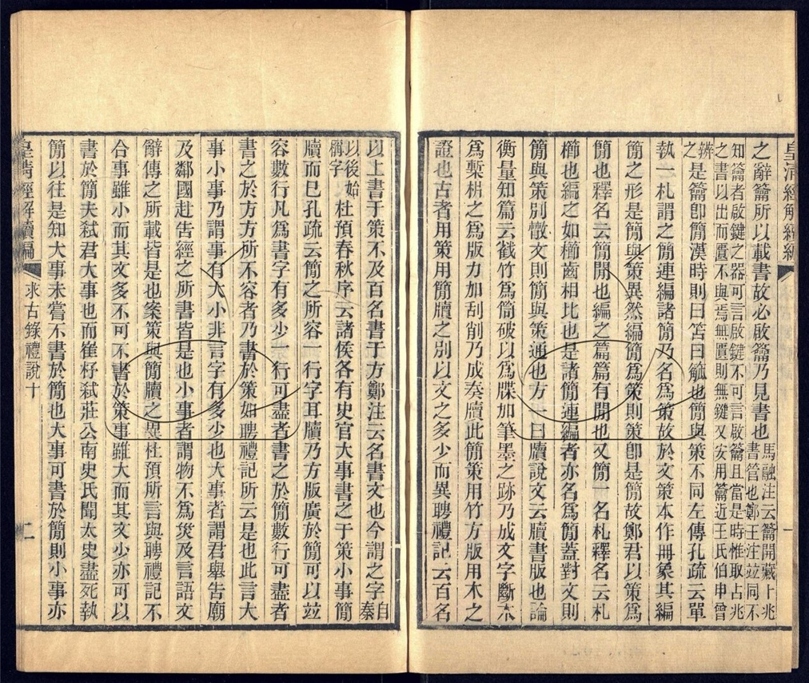 皇清經解續編
之辭籥所以載書故必啟籥乃見書也馬融注云籥開藏卜兆書管也鄭王注竝同不
知籥者啟鍵之器可言啟鍵不可言啟籥且當是時惟取占兆之書以出而置不與焉無置則無鍵又安用籥近王氏伯申曾
辨之是籥卽簡漢時則曰笘曰觚也簡與策不同左傳孔疏云單
執一札謂之簡連編諸簡乃名為策故於文策本作冊象其編
簡之形是簡與策異然編簡為策則策卽是簡故鄭君以策為
簡也釋名云簡閒也編之篇篇有閒也又簡一名札釋名云札
櫛也編之如櫛齒相比也是諸簡連編者亦名為簡蓋對文則
簡與策別散文則簡與策通也方一曰牘說文云牘書版也論
衡量知篇云截竹為筒破以為牒加筆墨之跡乃成文字斷木
為槧枿之為版力加刮削乃成奏牘此簡策用竹方版用木之
證也古者用策用簡牘之別以文之多少而異聘禮記云百名
以上書于策不及百名書于方鄭注云名書文也今謂之字自秦
以後始稱字杜預春秋序云諸侯各有史官大事書之于策小事簡
牘而已孔疏云簡之所容一行字耳牘乃方版廣於簡可以竝
容數行凡為書字有多少一行可盡者書之於簡數行可盡者
書之於方方所不容者乃書於策如聘禮記所云是也此言大
事小事乃謂事有大小非言字有多少也大事者謂君舉告廟
及鄰國赴告經之所書皆是也小事者謂物不為災及言語文
辭傳之所載皆是也案策與簡牘之異杜預所言與聘禮記不
合事雖小而其文多不可不書於策事雖大而其文少亦可以
書於簡夫弒君大事也而崔杼弒莊公南史氏聞太史盡死執
簡以往是知大事未嘗不書於簡也大事可書於簡則小事亦
皇清經解續編 求古錄禮說十 二